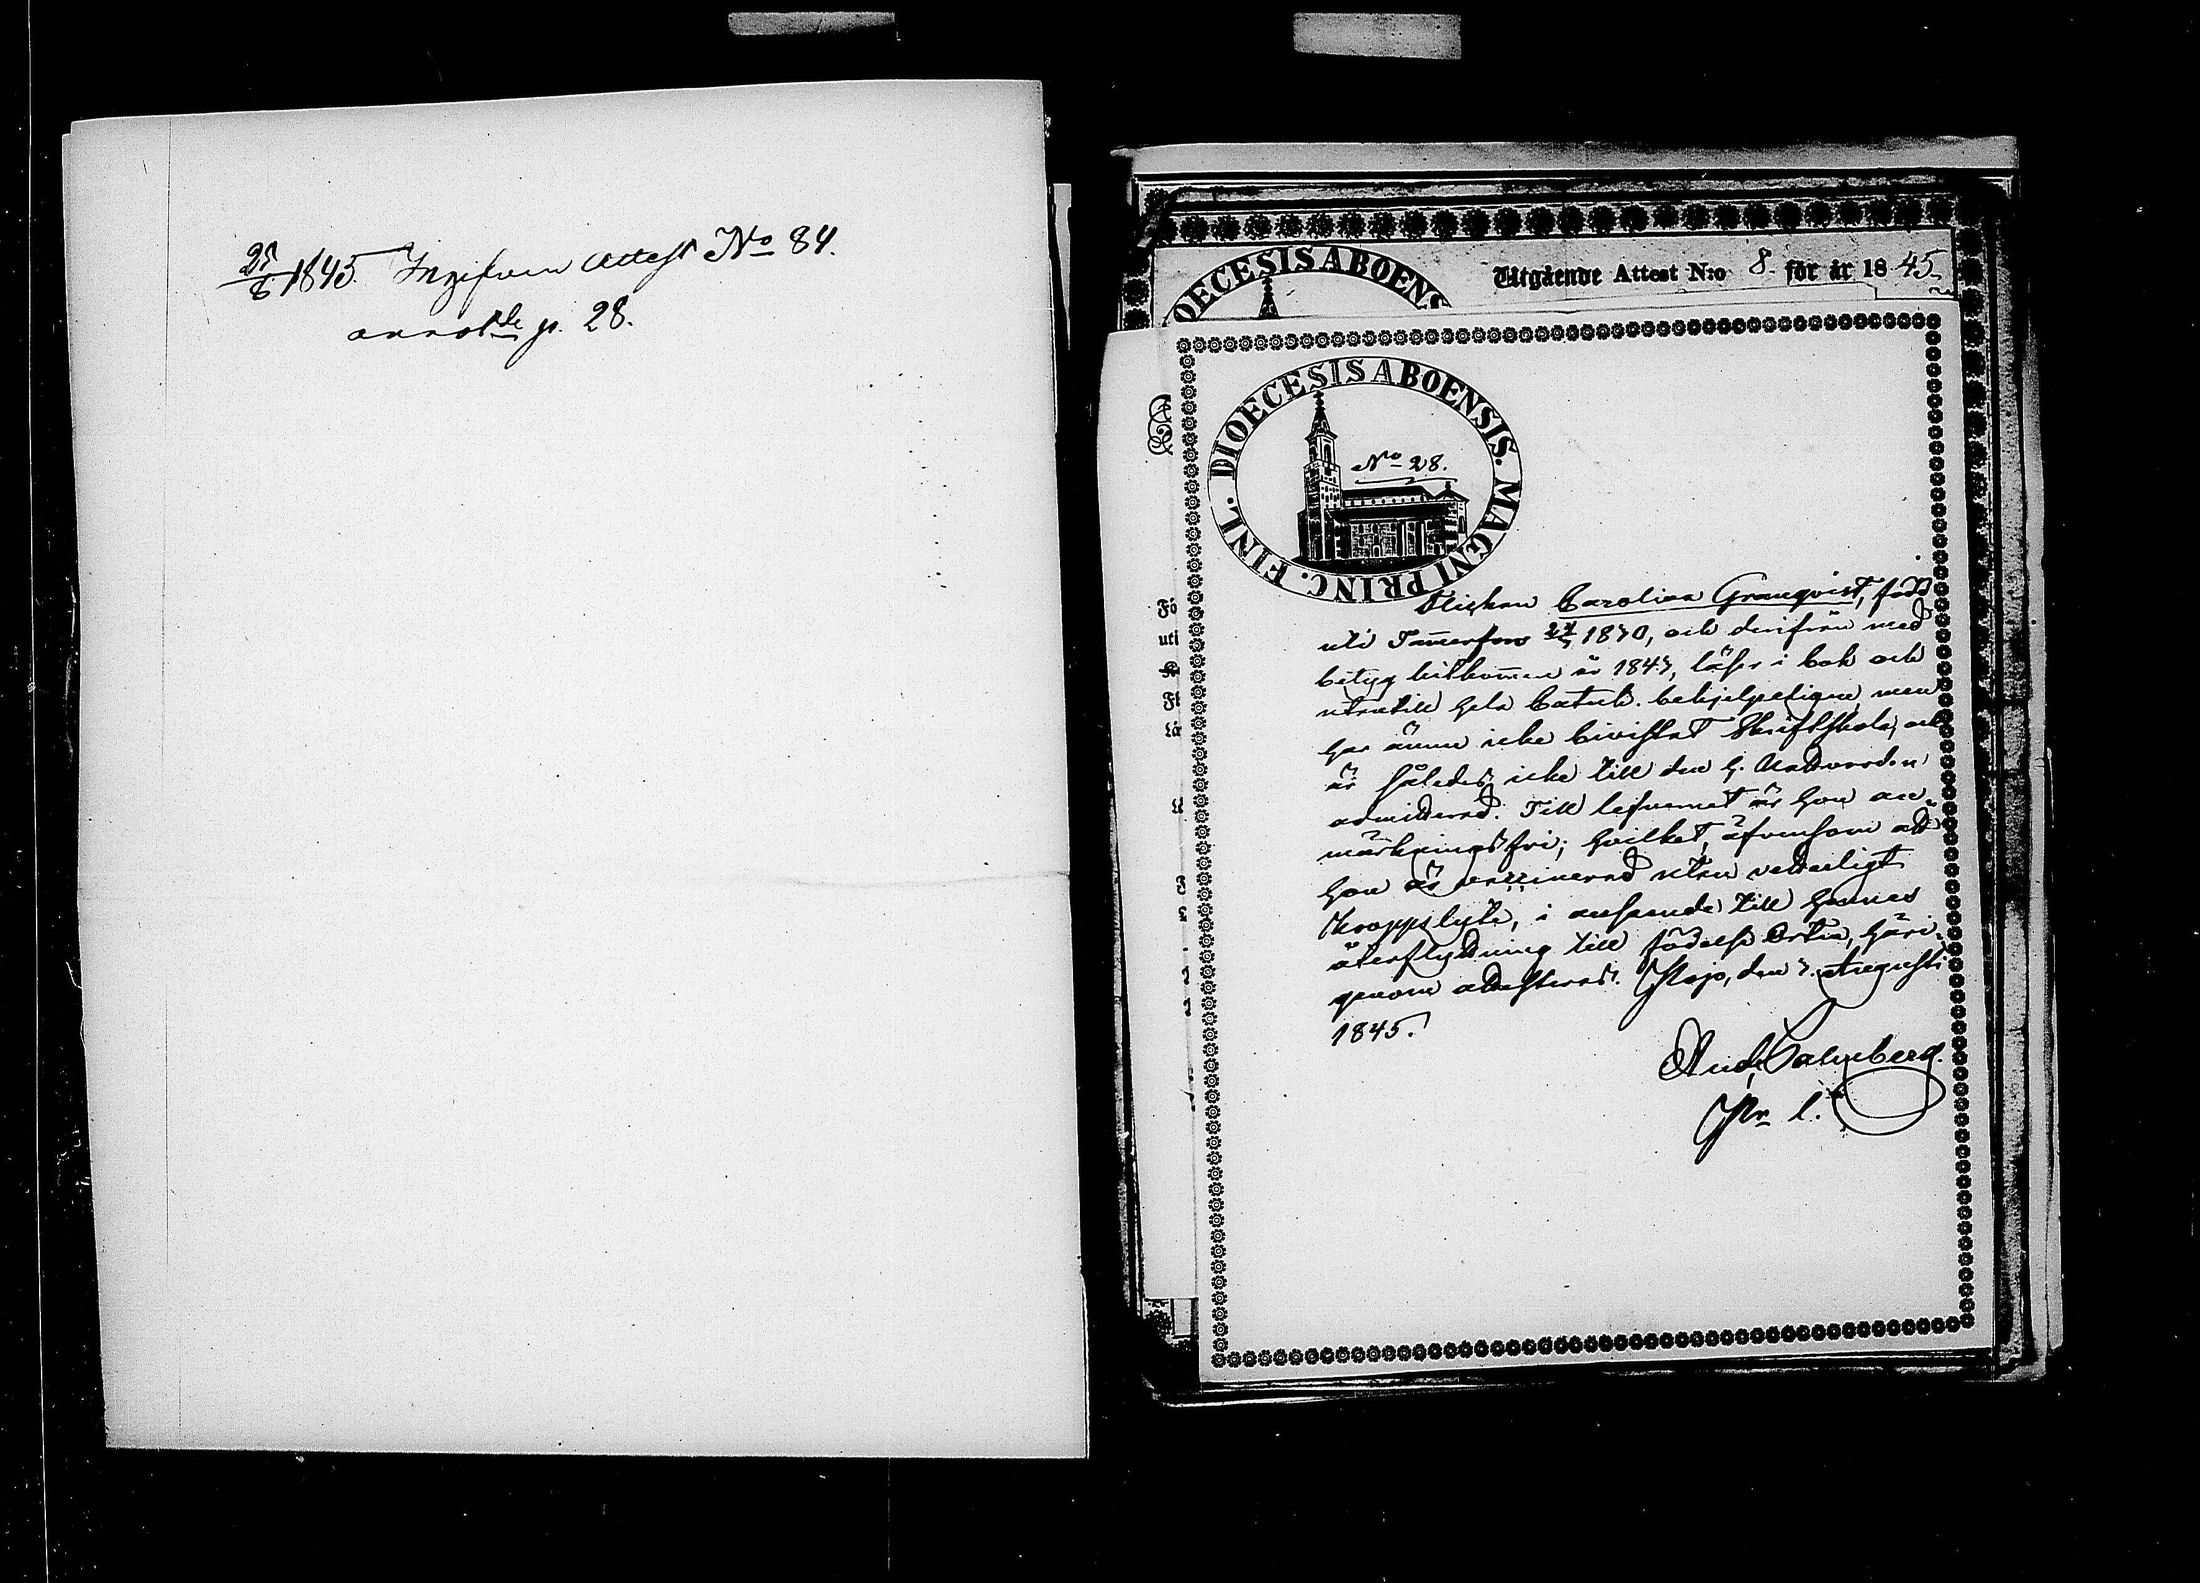 25/8 1845. Ingifven Attest No 84.
annotde p. 28.
DIOECESIS ABOENS
Utgående Attest N:o 8. för år 1845.
DIOECESIS ABOENSIS. MAGNI PRINC. FINL.
No 28.
Fö
uti
Flickan Carolina Granqvist, född
uti Tam̄erfors 1830, och derifrån med
betyg hitkom̄en år 1843, läser i bok och
utantill hela Catech. behjelpeligen, men
har ännu icke bivistat Skriftskola, och
är således icke till den H. Nattvarden
admitterad. Till lefvernet är hon an-
märkningsfri; hvilket, äfvensom att
hon är vaccinerad utan vetterligt
Kroppslyte, i anseende till hennes
återflyttning till födelse Orten, häri-
genom attesteras. den 3. Augusti
1845.
And. Salmberg.